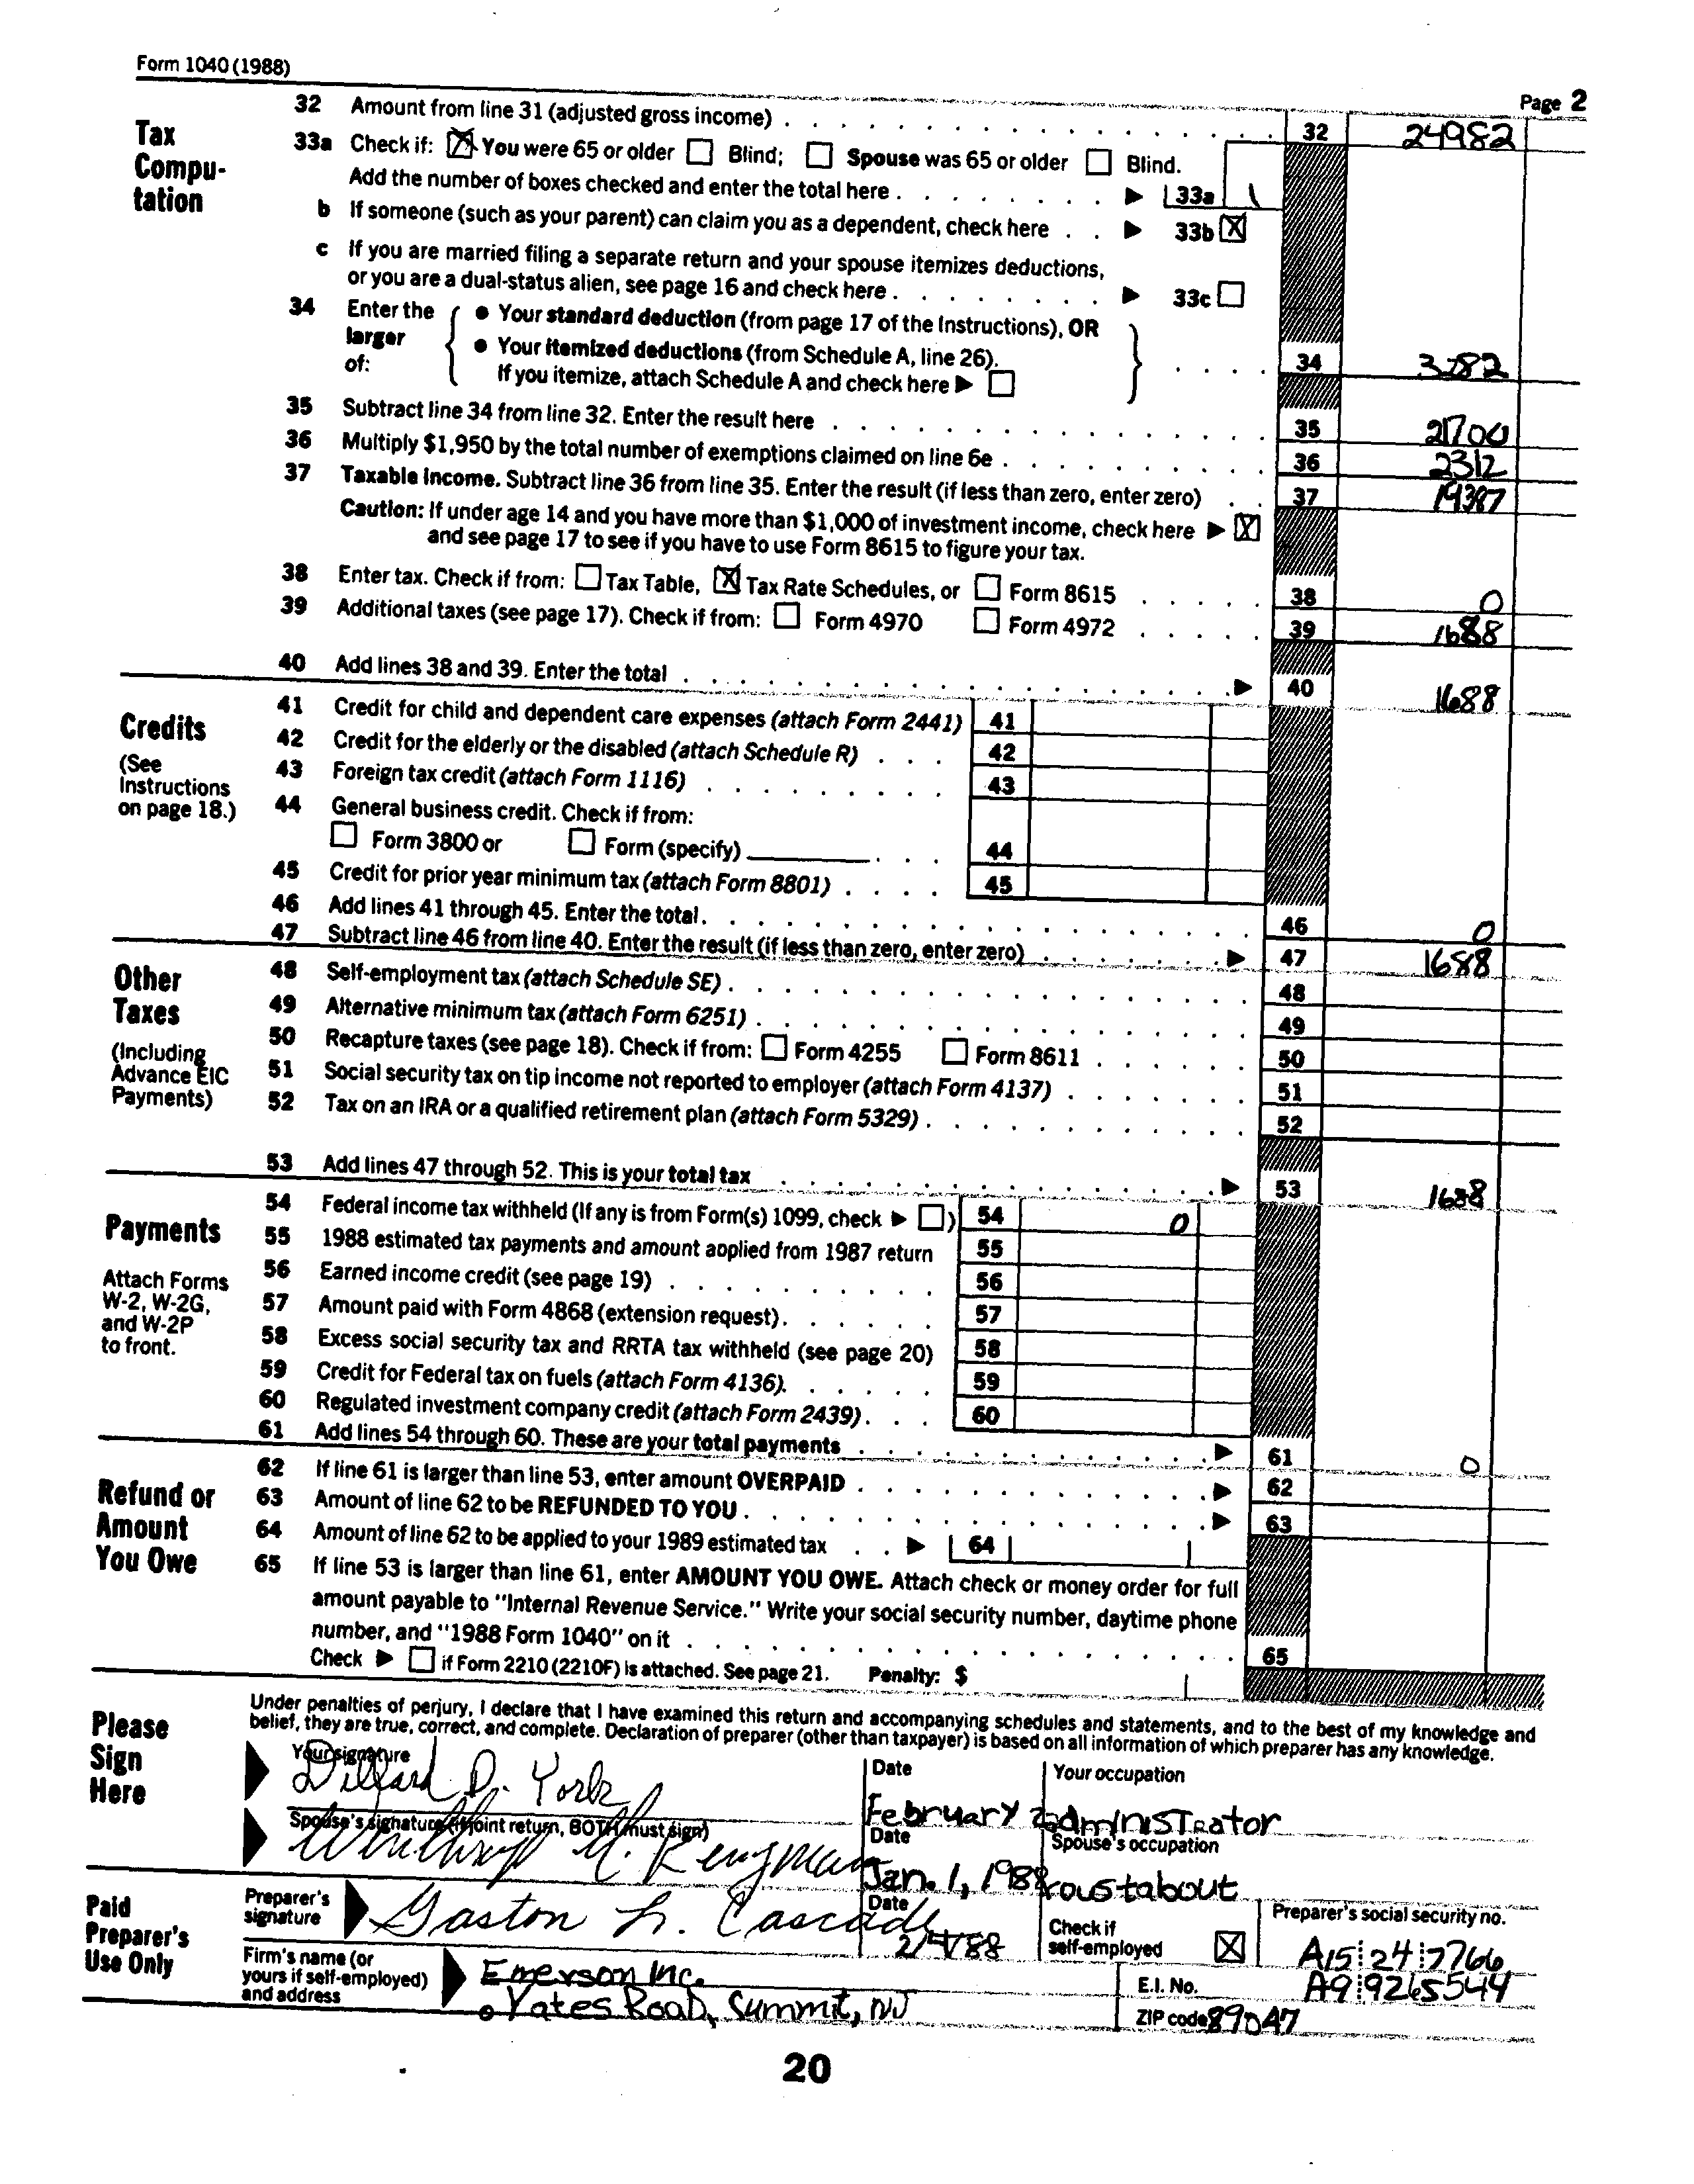 Form 1040 (1988)
Page 2
Tax Compu-tation
32 Amount from line 31 (adjusted gross income) 32 24982
33a Check if: ☒ You were 65 or older ☐ Blind; ☐ Spouse was 65 or older ☐ Blind.
Add the number of boxes checked and enter the total here ► 33a 1
b If someone (such as your parent) can claim you as a dependent, check here ► 33b ☒
c If you are married filing a separate return and your spouse itemizes deductions,
or you are a dual-status alien, see page 16 and check here ► 33c ☐
34 Enter the larger of:
● Your standard deduction (from page 17 of the Instructions), OR
● Your itemized deductions (from Schedule A, line 26).
If you itemize, attach Schedule A and check here ► ☐
34 3282
35 Subtract line 34 from line 32. Enter the result here 35 21700
36 Multiply $1,950 by the total number of exemptions claimed on line 6e 36 2312
37 Taxable income. Subtract line 36 from line 35. Enter the result (if less than zero, enter zero) 37 19387
Caution: If under age 14 and you have more than $1,000 of investment income, check here ► ☒
and see page 17 to see if you have to use Form 8615 to figure your tax.
38 Enter tax. Check if from: ☐ Tax Table, ☒ Tax Rate Schedules, or ☐ Form 8615 38 0
39 Additional taxes (see page 17). Check if from: ☐ Form 4970 ☐ Form 4972 39 1688
40 Add lines 38 and 39. Enter the total ► 40 1688
Credits
(See Instructions on page 18.)
41 Credit for child and dependent care expenses (attach Form 2441) 41
42 Credit for the elderly or the disabled (attach Schedule R) 42
43 Foreign tax credit (attach Form 1116) 43
44 General business credit. Check if from:
☐ Form 3800 or ☐ Form (specify) 44
45 Credit for prior year minimum tax (attach Form 8801) 45
46 Add lines 41 through 45. Enter the total 46 0
47 Subtract line 46 from line 40. Enter the result (if less than zero, enter zero) ► 47 1688
Other Taxes
(Including Advance EIC Payments)
48 Self-employment tax (attach Schedule SE) 48
49 Alternative minimum tax (attach Form 6251) 49
50 Recapture taxes (see page 18). Check if from: ☐ Form 4255 ☐ Form 8611 50
51 Social security tax on tip income not reported to employer (attach Form 4137) 51
52 Tax on an IRA or a qualified retirement plan (attach Form 5329) 52
53 Add lines 47 through 52. This is your total tax ► 53 1688
Payments
Attach Forms W-2, W-2G, and W-2P to front.
54 Federal income tax withheld (If any is from Form(s) 1099, check ► ☐) 54 0
55 1988 estimated tax payments and amount applied from 1987 return 55
56 Earned income credit (see page 19) 56
57 Amount paid with Form 4868 (extension request) 57
58 Excess social security tax and RRTA tax withheld (see page 20) 58
59 Credit for Federal tax on fuels (attach Form 4136) 59
60 Regulated investment company credit (attach Form 2439) 60
61 Add lines 54 through 60. These are your total payments ► 61 0
Refund or Amount You Owe
62 If line 61 is larger than line 53, enter amount OVERPAID ► 62
63 Amount of line 62 to be REFUNDED TO YOU ► 63
64 Amount of line 62 to be applied to your 1989 estimated tax ► 64
65 If line 53 is larger than line 61, enter AMOUNT YOU OWE. Attach check or money order for full
amount payable to "Internal Revenue Service." Write your social security number, daytime phone
number, and "1988 Form 1040" on it 65
Check ► ☐ if Form 2210 (2210F) is attached. See page 21. Penalty: $
Please Sign Here
Under penalties of perjury, I declare that I have examined this return and accompanying schedules and statements, and to the best of my knowledge and
belief, they are true, correct, and complete. Declaration of preparer (other than taxpayer) is based on all information of which preparer has any knowledge.
Your signature Date Your occupation
Dillard D. York February 2 administrator
Spouse's signature (if joint return, BOTH must sign) Date Spouse's occupation
Winthrop M. Kengman Jan. 1, 1988 roustabout
Paid Preparer's Use Only
Preparer's signature Gaston L. Cascade Date 2/4/88 Check if self-employed ☒ Preparer's social security no. A15 24 7766
Firm's name (or yours if self-employed) and address Emerson Inc. E.I. No. A9 9265544
Yates Road, Summit, NJ ZIP code 89047
20